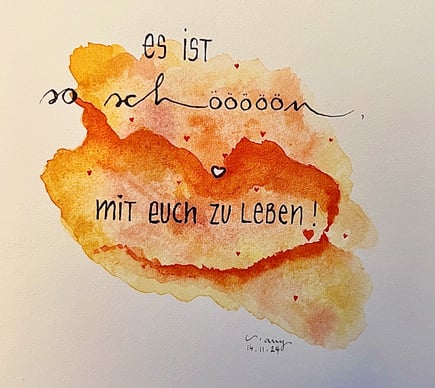 es ist
so schööööön,
mit euch zu Leben!
14.11.24